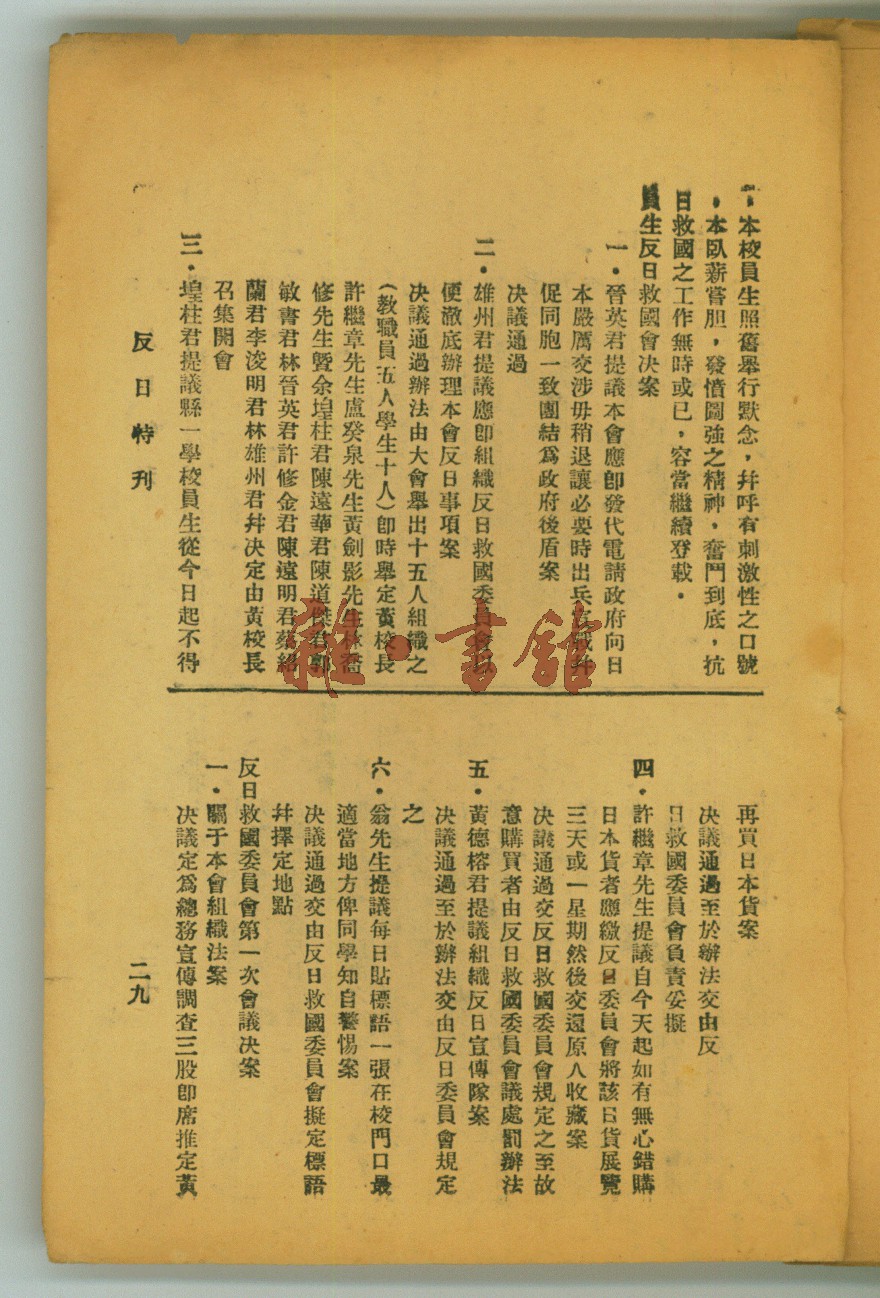 本校員生照舊舉行默念，幷呼有刺激性之口號
，本臥薪嘗胆，發憤圖強之精神，奮鬥到底，抗
日救國之工作無時或已，容當繼續登載。
員生反日救國會決案
一．晉英君提議本會應卽發代電請政府向日
本嚴厲交涉毋稍退讓必要時出兵宣戰幷
促同胞一致團結爲政府後盾案
決議通過
二．雄州君提議應卽組織反日救國委員會以
便澈底辦理本會反日事項案
決議通過辦法由大會舉出十五人組織之
（敎職員五人學生十人）卽時舉定黃校長
許繼章先生盧癸泉先生黃劍影先生林喬
修先生曁余埕柱君陳遠華君陳道傑君郭
敏書君林晉英君許修金君陳遠明君蔡紹
蘭君李浚明君林雄州君幷決定由黃校長
召集開會
三．埕柱君提議縣一學校員生從今日起不得
再買日本貨案
決議通過至於辦法交由反
日救國委員會負責妥擬
四．許繼章先生提議自今天起如有無心錯購
日本貨者應繳反日委員會將該日貨展覽
三天或一星期然後交還原人收藏案
決議通過交反日救國委員會規定之至故
意購買者由反日救國委員會議處罰辦法
五．黃德榕君提議組織反日宣傳隊案
決議通過至於辦法交由反日委員會規定
之
六．翁先生提議每日貼標語一張在校門口最
適當地方俾同學知自警惕案
決議通過交由反日救國委員會擬定標語
幷擇定地點
反日救國委員會第一次會議決案
一．關于本會組織法案
決議定爲總務宣傳調查三股卽席推定黃
反日特刊
二九
雜·書館